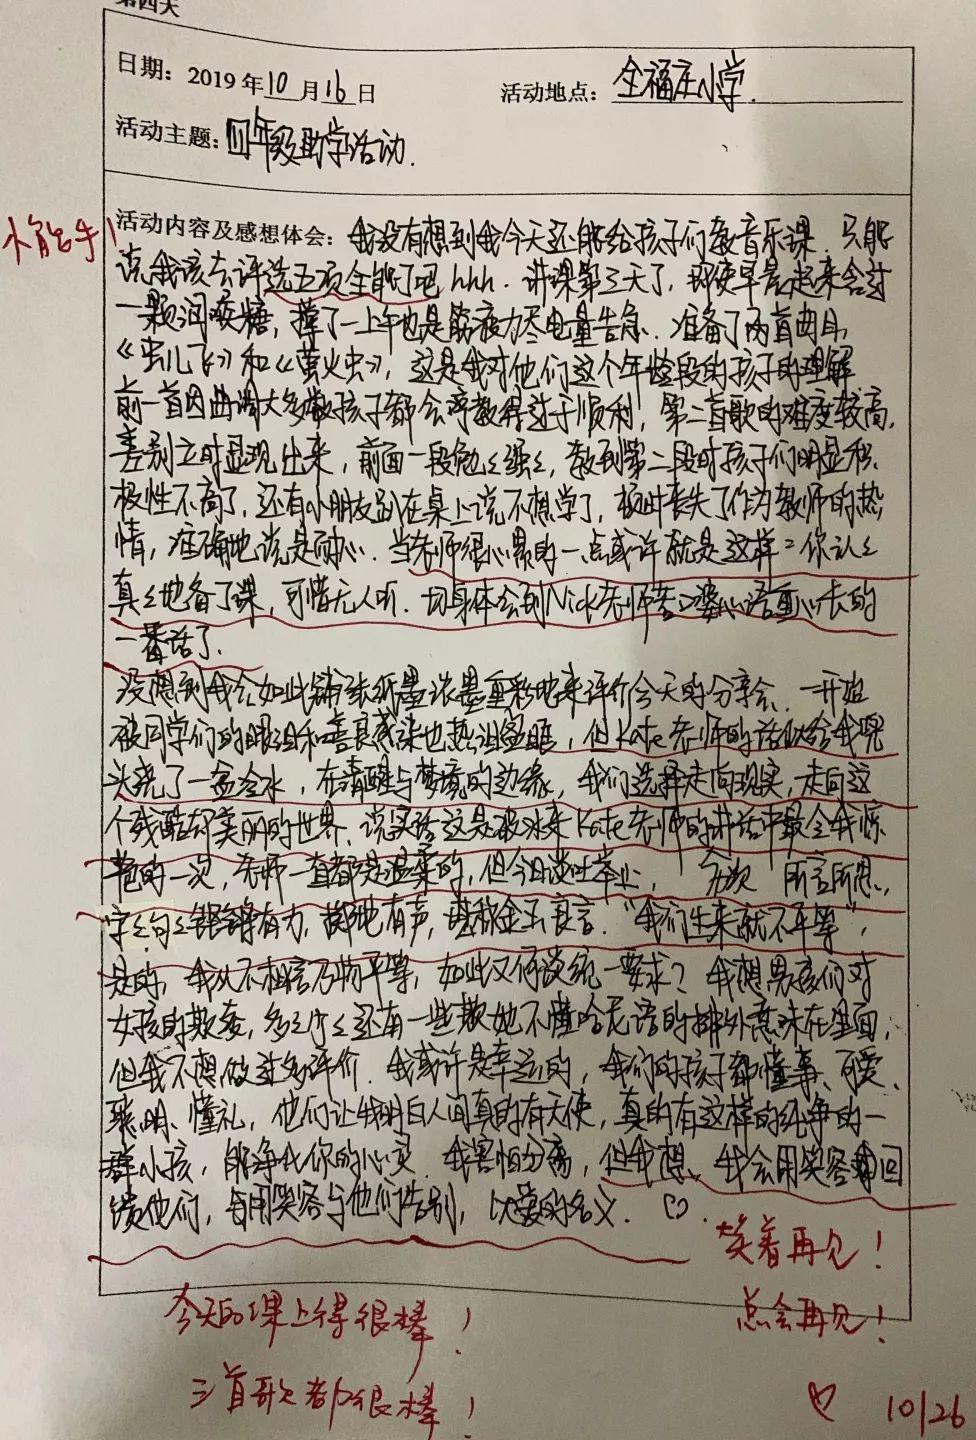 第四天
日期：2019年10月16日
活动地点：全福庄小学.
活动主题：四年级助学活动.
小能手！
活动内容及感想体会：我没有想到我今天还能给孩子们教音乐课，只能
说我该去评选五项全能了吧hhh. 讲课第三天了，即使早晨起来含过
一颗润喉糖，撑了一上午也是筋疲力尽电量告急. 准备了两首曲目，
《虫儿飞》和《萤火虫》，这是我对他们这个年龄段的孩子的理解
前一首因曲调大多数孩子都会 教得过于顺利，第二首歌的难度较高，
差别立时显现出来，前面一段勉々强々，教到第二段时孩子们明显积
极性不高了，还有小朋友趴在桌上说不想学了，顿时丧失了作为教师的热
情，准确地说是耐心. 当老师很心累的一点或许就是这样：你认々
真々地备了课，可惜无人听. 切身体会到Nick老师苦口婆心语重心长的
一番话了.
没想到我会如此铺张纸墨浓墨重彩地来评价今天的分享会. 一开始
被同学们的眼泪和善良感染也热泪盈眶，但Kate老师的话似给我兜
头浇了一盆冷水，在清醒与梦境的边缘，我们选择走向现实，走向这
个残酷却美丽的世界. 说实话这是被 来Kate老师的讲话中最令我惊
艳的一次，老师一直都是温柔的，但今日谈吐举止， 所言所思，
字々句々铿锵有力，掷地有声，堪称金玉良言. “我们生来就不平等”，
是的，我从不相信万物平等，如此又何谈统一要求？我想男孩们对
女孩的欺凌，多々少々还有一些欺她不懂哈尼语的排外意味在里面，
但我不想做过多评价. 我或许是幸运的，我们的孩子都懂事、可爱、
聪明、懂礼，他们让我明白人间真的有天使，真的有这样的纯净的一
群小孩，能净化你的心灵. 我害怕分离，但我想，我会用笑容 回
馈他们，与用笑容与他们告别，以爱的名义. ♡.
笑着再见！
今天的课上得很棒！
总会再见！
三首歌都很棒！
♡ 10/26